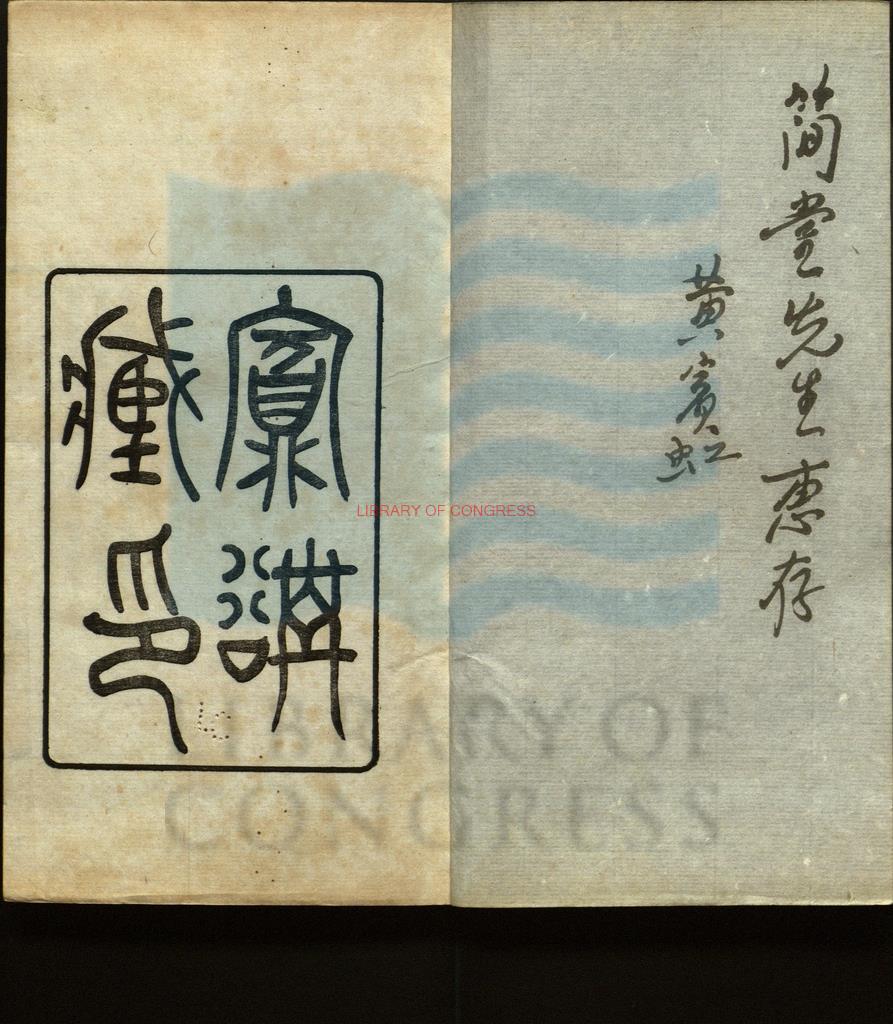 簡堂先生惠存
黃賓虹
賓谼
藏印
LIBRARY OF CONGRESS
LIBRARY OF
CONGRESS